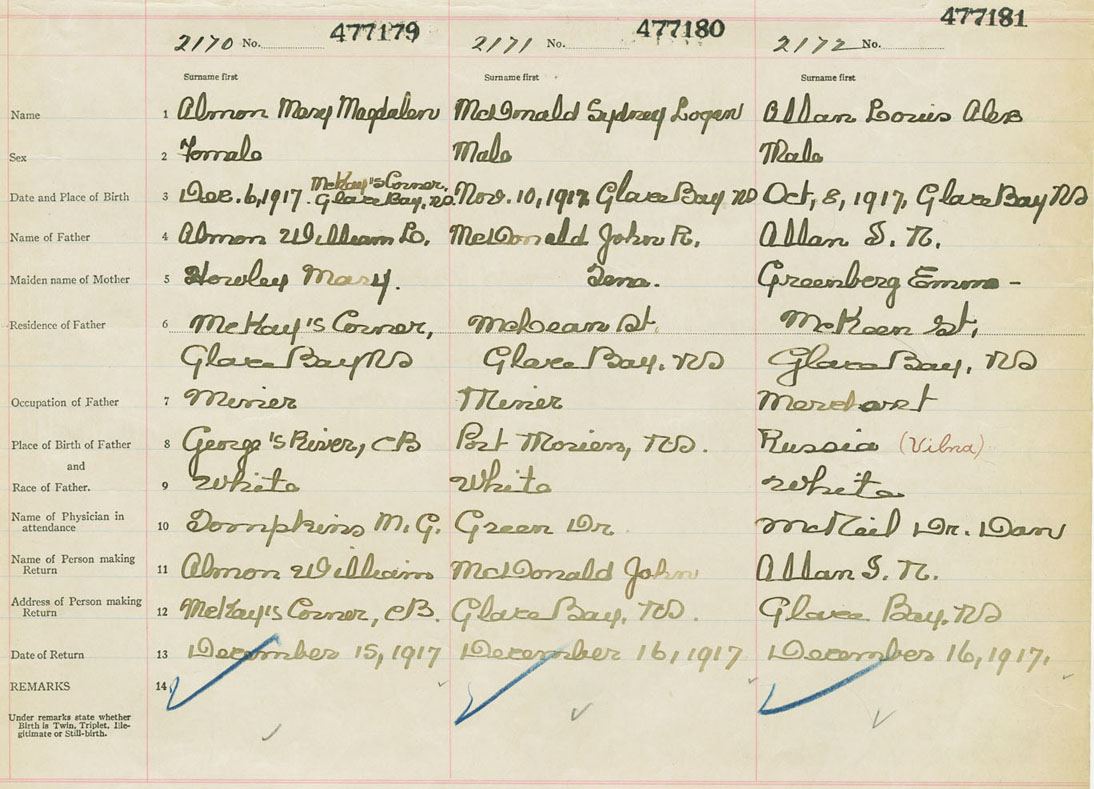 2170 No. 477179 2171 No. 477180 2172 No. 477181
Surname first Surname first Surname first
Name 1 Almon Mary Magdalen McDonald Sydney Logan Allan Louis Alex
Sex 2 Female Male Male
Date and Place of Birth 3 Dec. 6, 1917 McKay's Corner, Glace Bay, NS Nov. 10, 1917, Glace Bay NS Oct, 8, 1917, Glace Bay NS
Name of Father 4 Almon William Lo. McDonald John R. Allan S. N.
Maiden name of Mother 5 Howley Mary. Tena. Greenberg Emma -
Residence of Father 6 McKay's Corner, McLean St. McKeen St,
Glace Bay NS Glace Bay, NS Glace Bay, NS
Occupation of Father 7 Miner Miner Merchant
Place of Birth of Father 8 George's River, CB Port Morien, NS. Russia (Vilna)
and
Race of Father. 9 White White White
Name of Physician in
attendance 10 Tompkins M. G. Green Dr. McNeil Dr. Dan
Name of Person making
Return 11 Almon William McDonald John Allan S. N.
Address of Person making
Return 12 McKay's Corner, CB. Glace Bay, NS. Glace Bay, NS
Date of Return 13 December 15, 1917 December 16, 1917 December 16, 1917,
REMARKS 14
Under remarks state whether
Birth is Twin, Triplet, Ille-
gitimate or Still-birth.